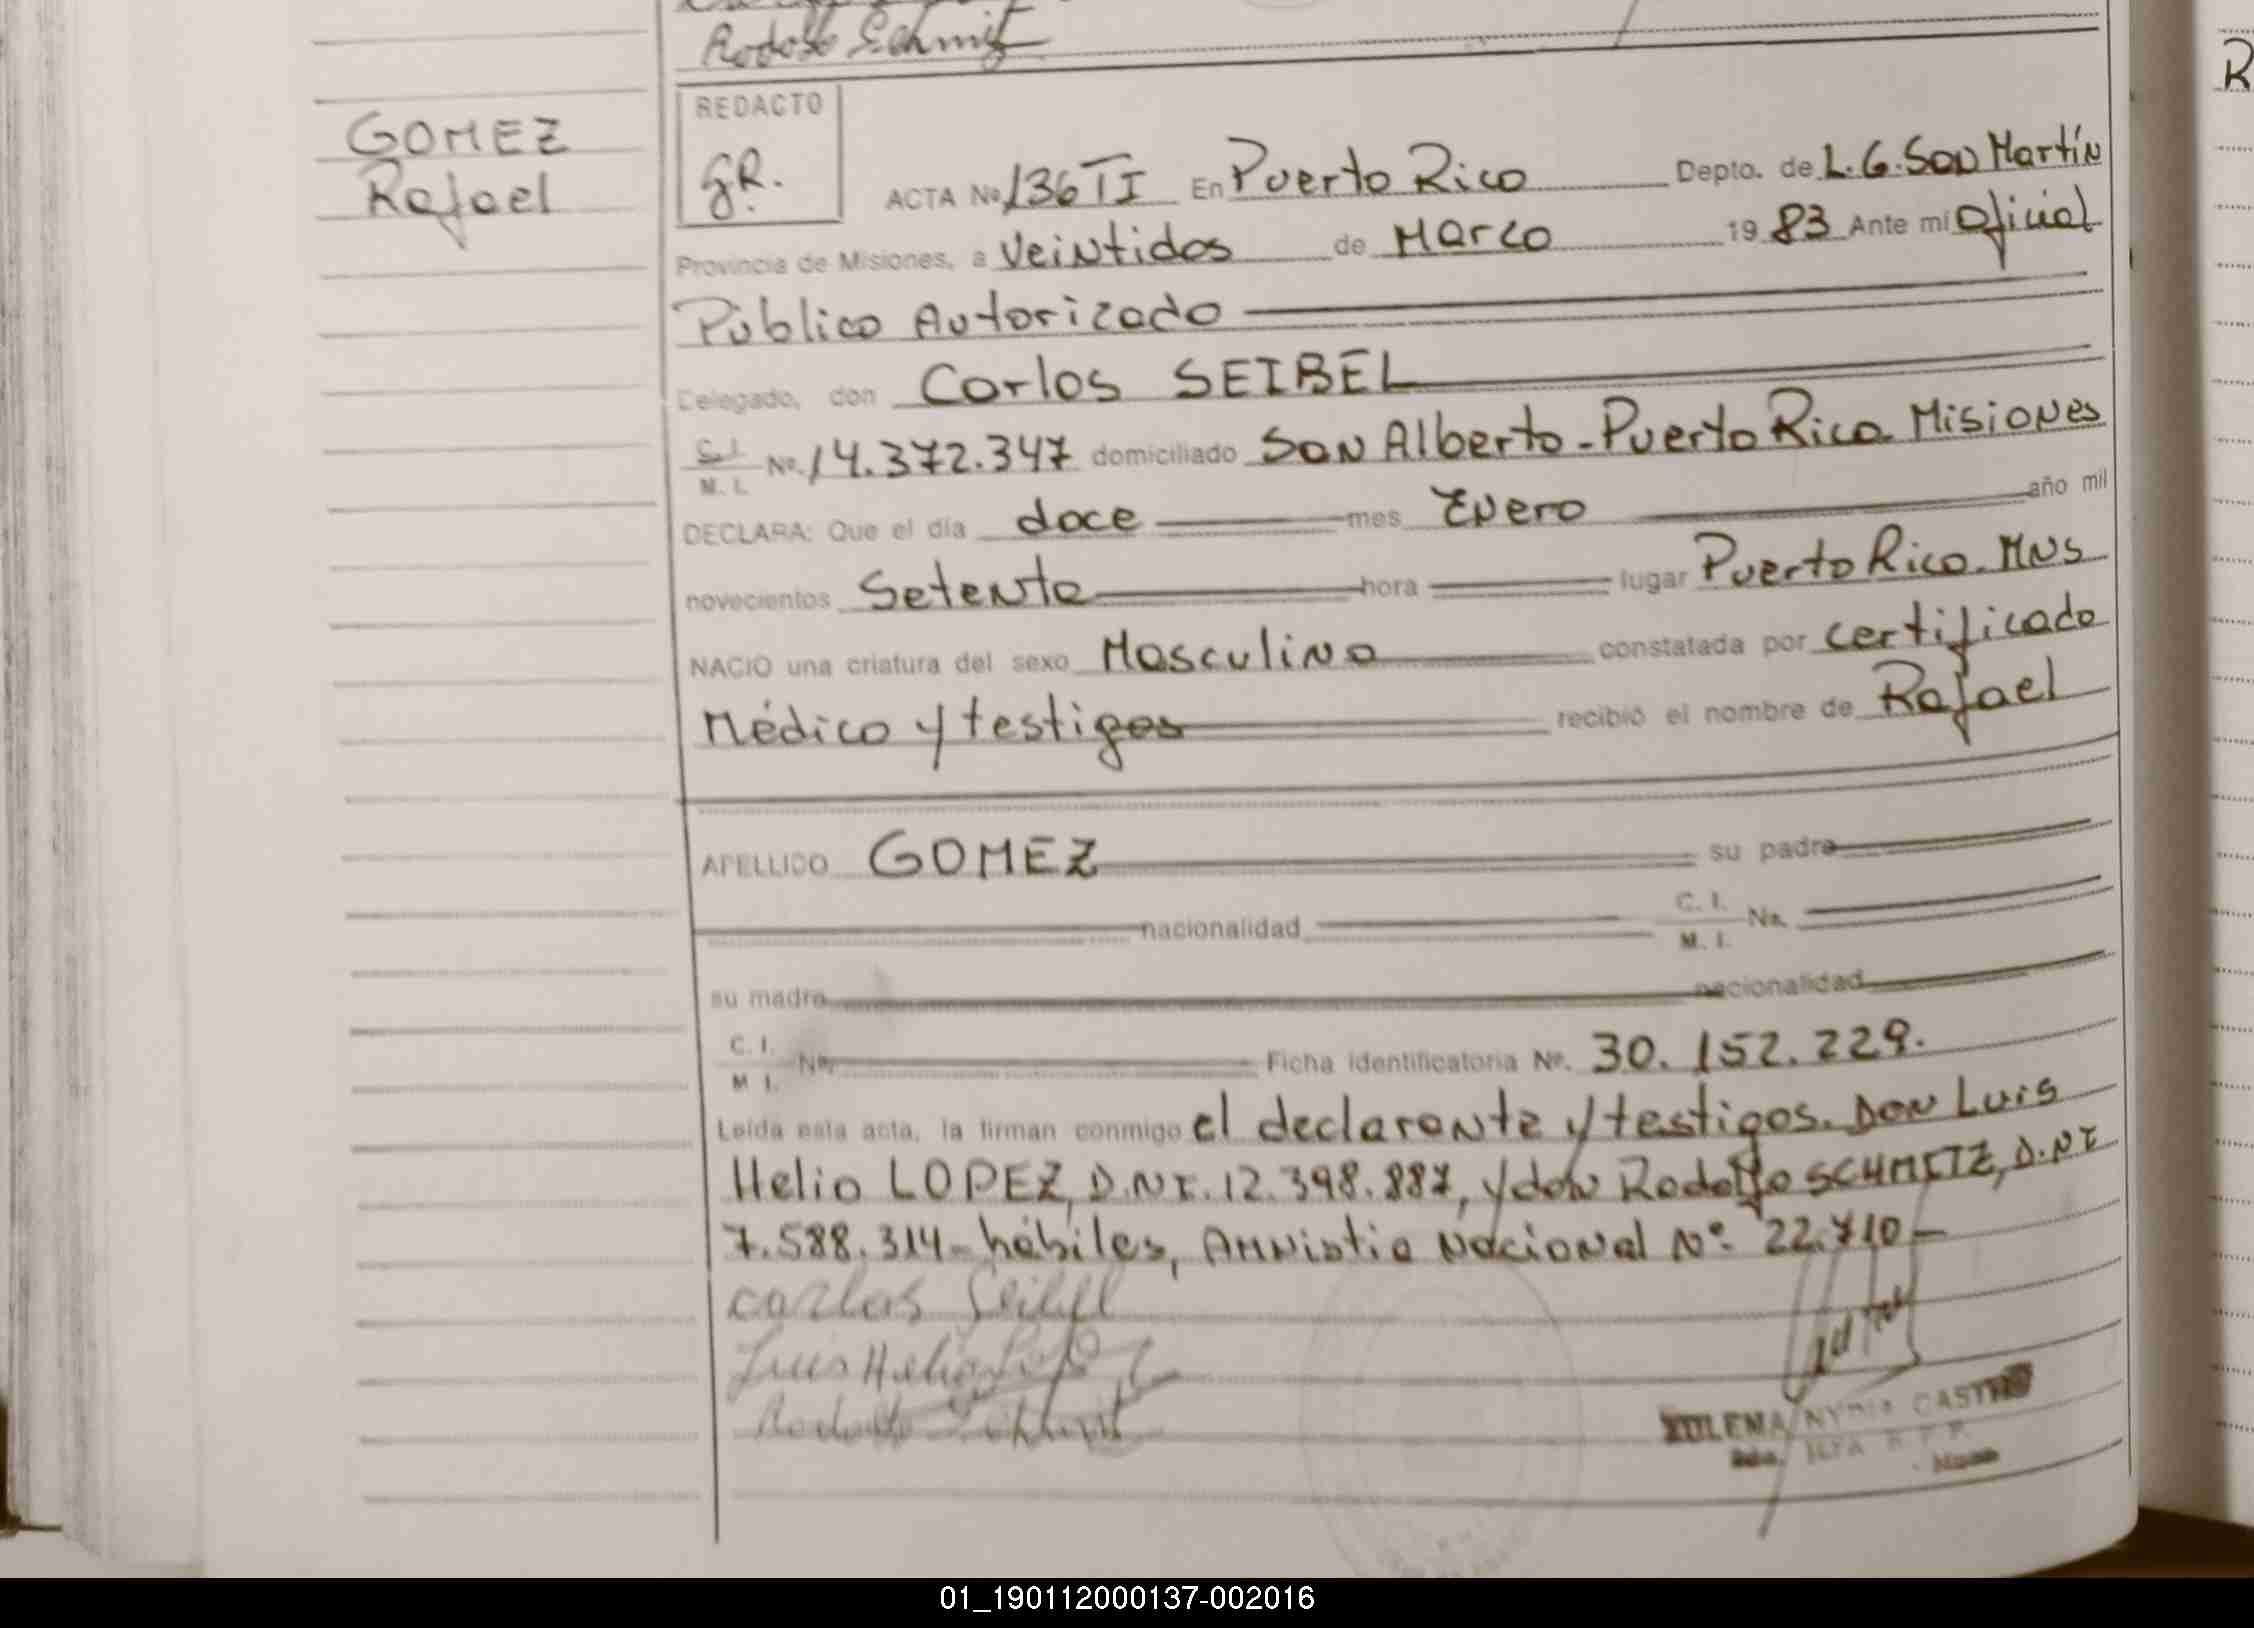 Rodolfo Schmitz
R
GOMEZ
Rafael
REDACTO
GR.
ACTA No 136 TI En Puerto Rico Depto. de L. G. San Martín
Provincia de Misiones, a Veintidos de Marzo 1983 Ante mí Oficial
Público Autorizado
Delegado, don Carlos SEIBEL
C. I.
M. I. No. 14.372.347 domiciliado San Alberto - Puerto Rico. Misiones
DECLARA: Que el día doce mes Enero año mil
novecientos Setenta hora lugar Puerto Rico. Mns
NACIO una criatura del sexo Masculino constatada por certificado
Médico y testigos recibió el nombre de Rafael
APELLIDO GOMEZ su padre
nacionalidad C. I.
M. I. No.
su madre nacionalidad
C. I.
M. I. No. Ficha identificatoria No. 30.152.229.
Leída esta acta, la firman conmigo el declarante y testigos. Don Luis
Helio LOPEZ, D.N.I. 12.398.887, y don Rodolfo SCHMITZ, D.N.I
7.588.314 - hábiles, Amnistia Nacional No. 22.710 -
Carlos Seibel
Luis Helio Lopez
Rodolfo Schmitz
ZULEMA NYDIA CASTRO
01_190112000137-002016